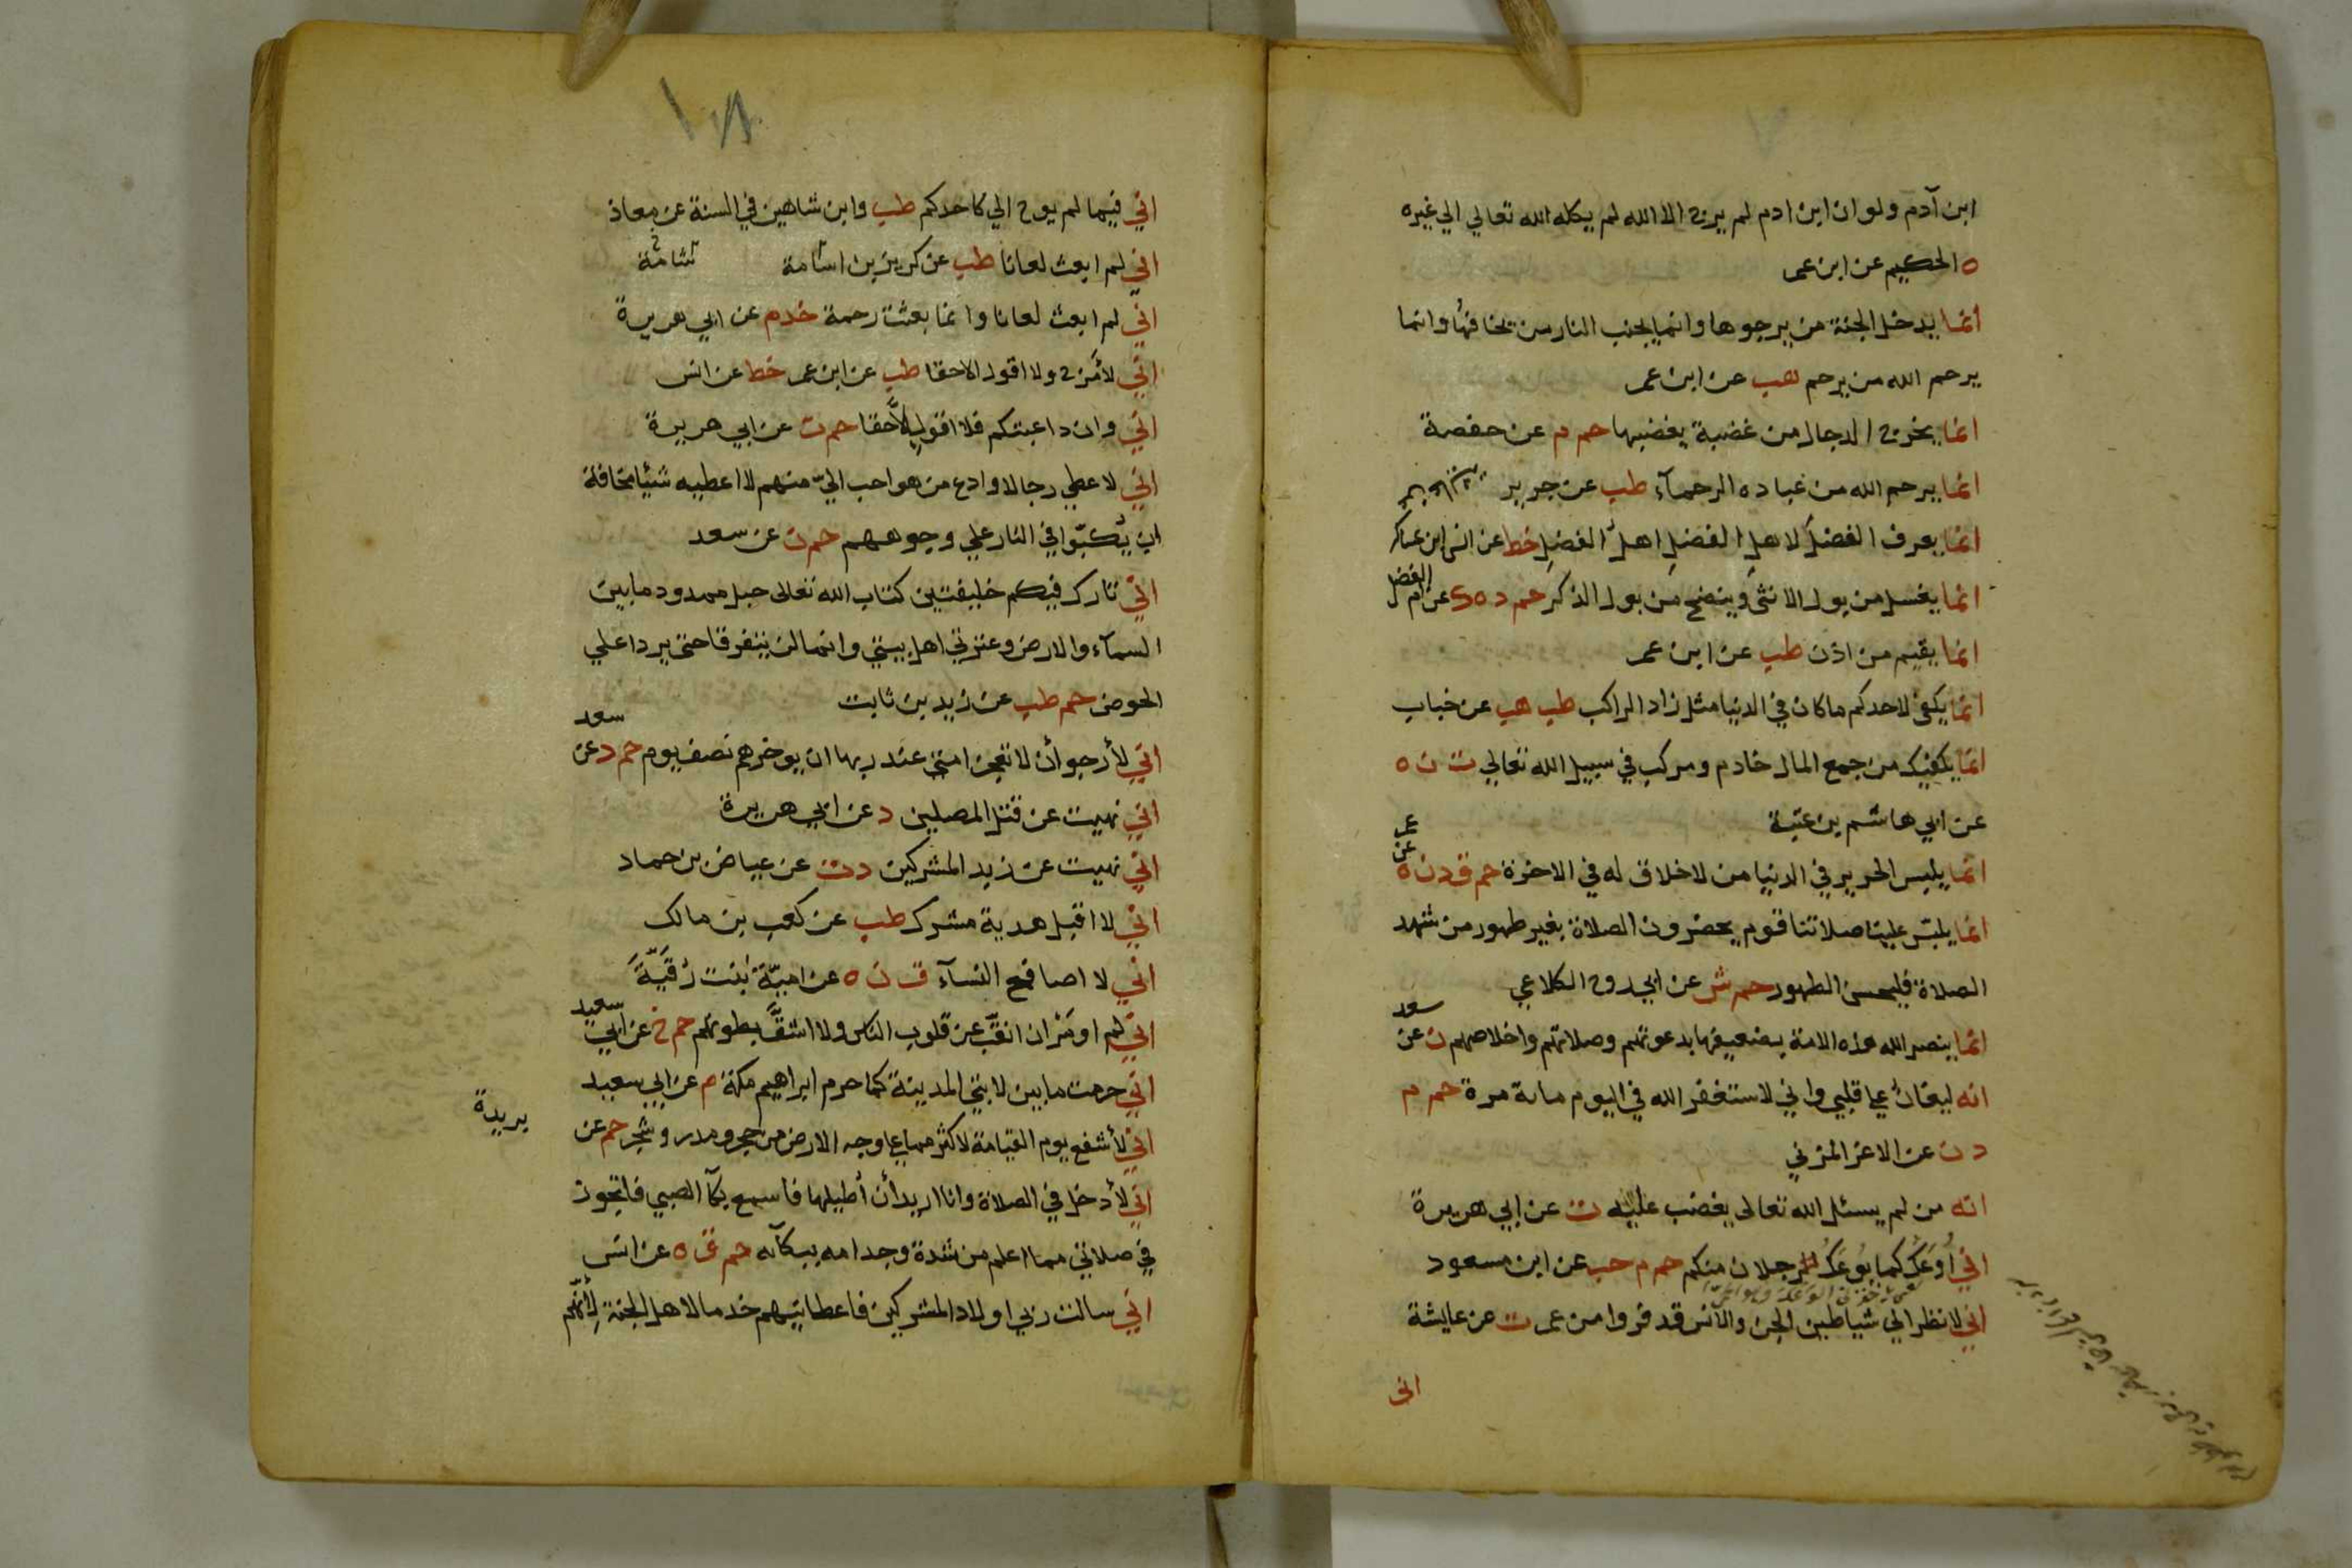 ابن آدم ولو ان ابن ادم لم يرج الا الله لم يكله الله تعالي الي غيره
ه الحكيم عن ابن عمر
انما يدخل الجنة من يرجوها وانما يجنب النار من يخافها وانما
يرحم الله من يرحم هب عن ابن عمر
انما يخرج الدجال من غضبة يغضبها حم م عن حفصة
انما يرحم الله من عباده الرحمآء طب عن جرير
انما يعرف الفضل لاهل الفضل اهل الفضل خط عن انس ابن عساكر
انما يغسل من بول الانثى وينضح من بول الذكر حم د ه ك عن ام الفضل
انما يقيم من اذن طب عن ابن عمر
انما يكفي لاحدكم ما كان في الدنيا مثل زاد الراكب طب هب عن خباب
انما يكفيك من جمع المال خادم ومركب في سبيل الله تعالي ت ن ه
عن ابي هاشم بن عتبة
انما يلبس الحرير في الدنيا من لا خلاق له في الاخرة حم ق د ن ه عن عمر
انما يلبس علينا صلاتنا قوم يحضرون الصلاة بغير طهور من شهد
الصلاة فليحسن الطهور حم ش عن ابي روح الكلاعي
انما ينصر الله هذه الامة بضعيفها بدعوتهم وصلاتهم واخلاصهم ن عن سعد
انه ليغان علي قلبي واني لاستغفر الله في اليوم ماية مرة حم م
د ن عن الاغر المزني
انه من لم يسئل الله تعالى يغضب عليه ت عن ابي هريرة
اني أوعك كما يوعك رجلان منكم حم م حب عن ابن مسعود
اني لانظر الي شياطين الجن والانس قد فروا من عمر ت عن عايشة
انى
١٨١
اني فيما لم يوح الي كاحدكم طب وابن شاهين في السنة عن معاذ
اني لم ابعث لعانا طب عن كريز بن اسامة شامة
اني لم ابعث لعانا وانما بعثت رحمة خد م عن ابي هريرة
اني لأمزح ولا اقول الا حقا طب عن ابن عمر خط عن انس
اني وان داعبتكم فلا اقول الا حقا حم ت عن ابي هريرة
اني لاعطي رجالا وادع من هو احب اليّ منهم لا اعطيه شيئا مخافة
ان يُكبّوا في النار علي وجوههم حم ن عن سعد
اني تارك فيكم خليفتين كتاب الله تعالى حبل ممدود ما بين
السمآء والارض وعترتي اهل بيتي وانهما لن يتفرقا حتى يردا علي
الحوض حم طب عن زيد بن ثابت
اني لأرجو أن لا تعجز امتي عند ربها ان يوخرهم نصف يوم حم د عن سعد
اني نهيت عن قتل المصلين د عن ابي هريرة
اني نهيت عن زبد المشركين د ت عن عياض بن حماد
اني لا اقبل هدية مشرك طب عن كعب بن مالك
اني لا اصافح النسآء ت ن ه عن اميّة بنت رقيّة
اني لم اومر ان انقب عن قلوب الناس ولا اشق بطونهم حم خ عن ابي سعيد
اني حرمت ما بين لابتي المدينة كما حرم ابراهيم مكة م عن ابي سعيد
اني لأشفع يوم القيامة لاكثر مما علي وجه الارض من حجر ومدر وشجر حم عن بريدة
اني لأدخل في الصلاة وانا اريد أن أطيلها فاسمع بكآ الصبي فاتجوز
في صلاتي مما اعلم من شدة وجد امه ببكآئه حم ق ه عن انس
اني سالت ربي اولاد المشركين فاعطانيهم خدما لاهل الجنة لأنّهم